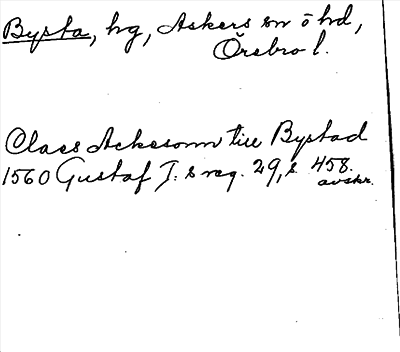 Bysta, hg, Askers sn o hd,
Örebro l.
Claes Ackesonn till Bystad
1560 Gustaf I:s reg. 29, s. 458.
avskr.